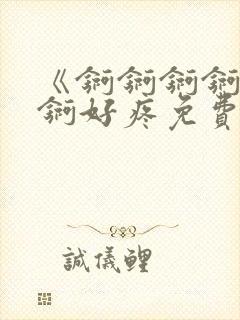 《锕锕锕锕
锕好疼免費
誠儀鯉